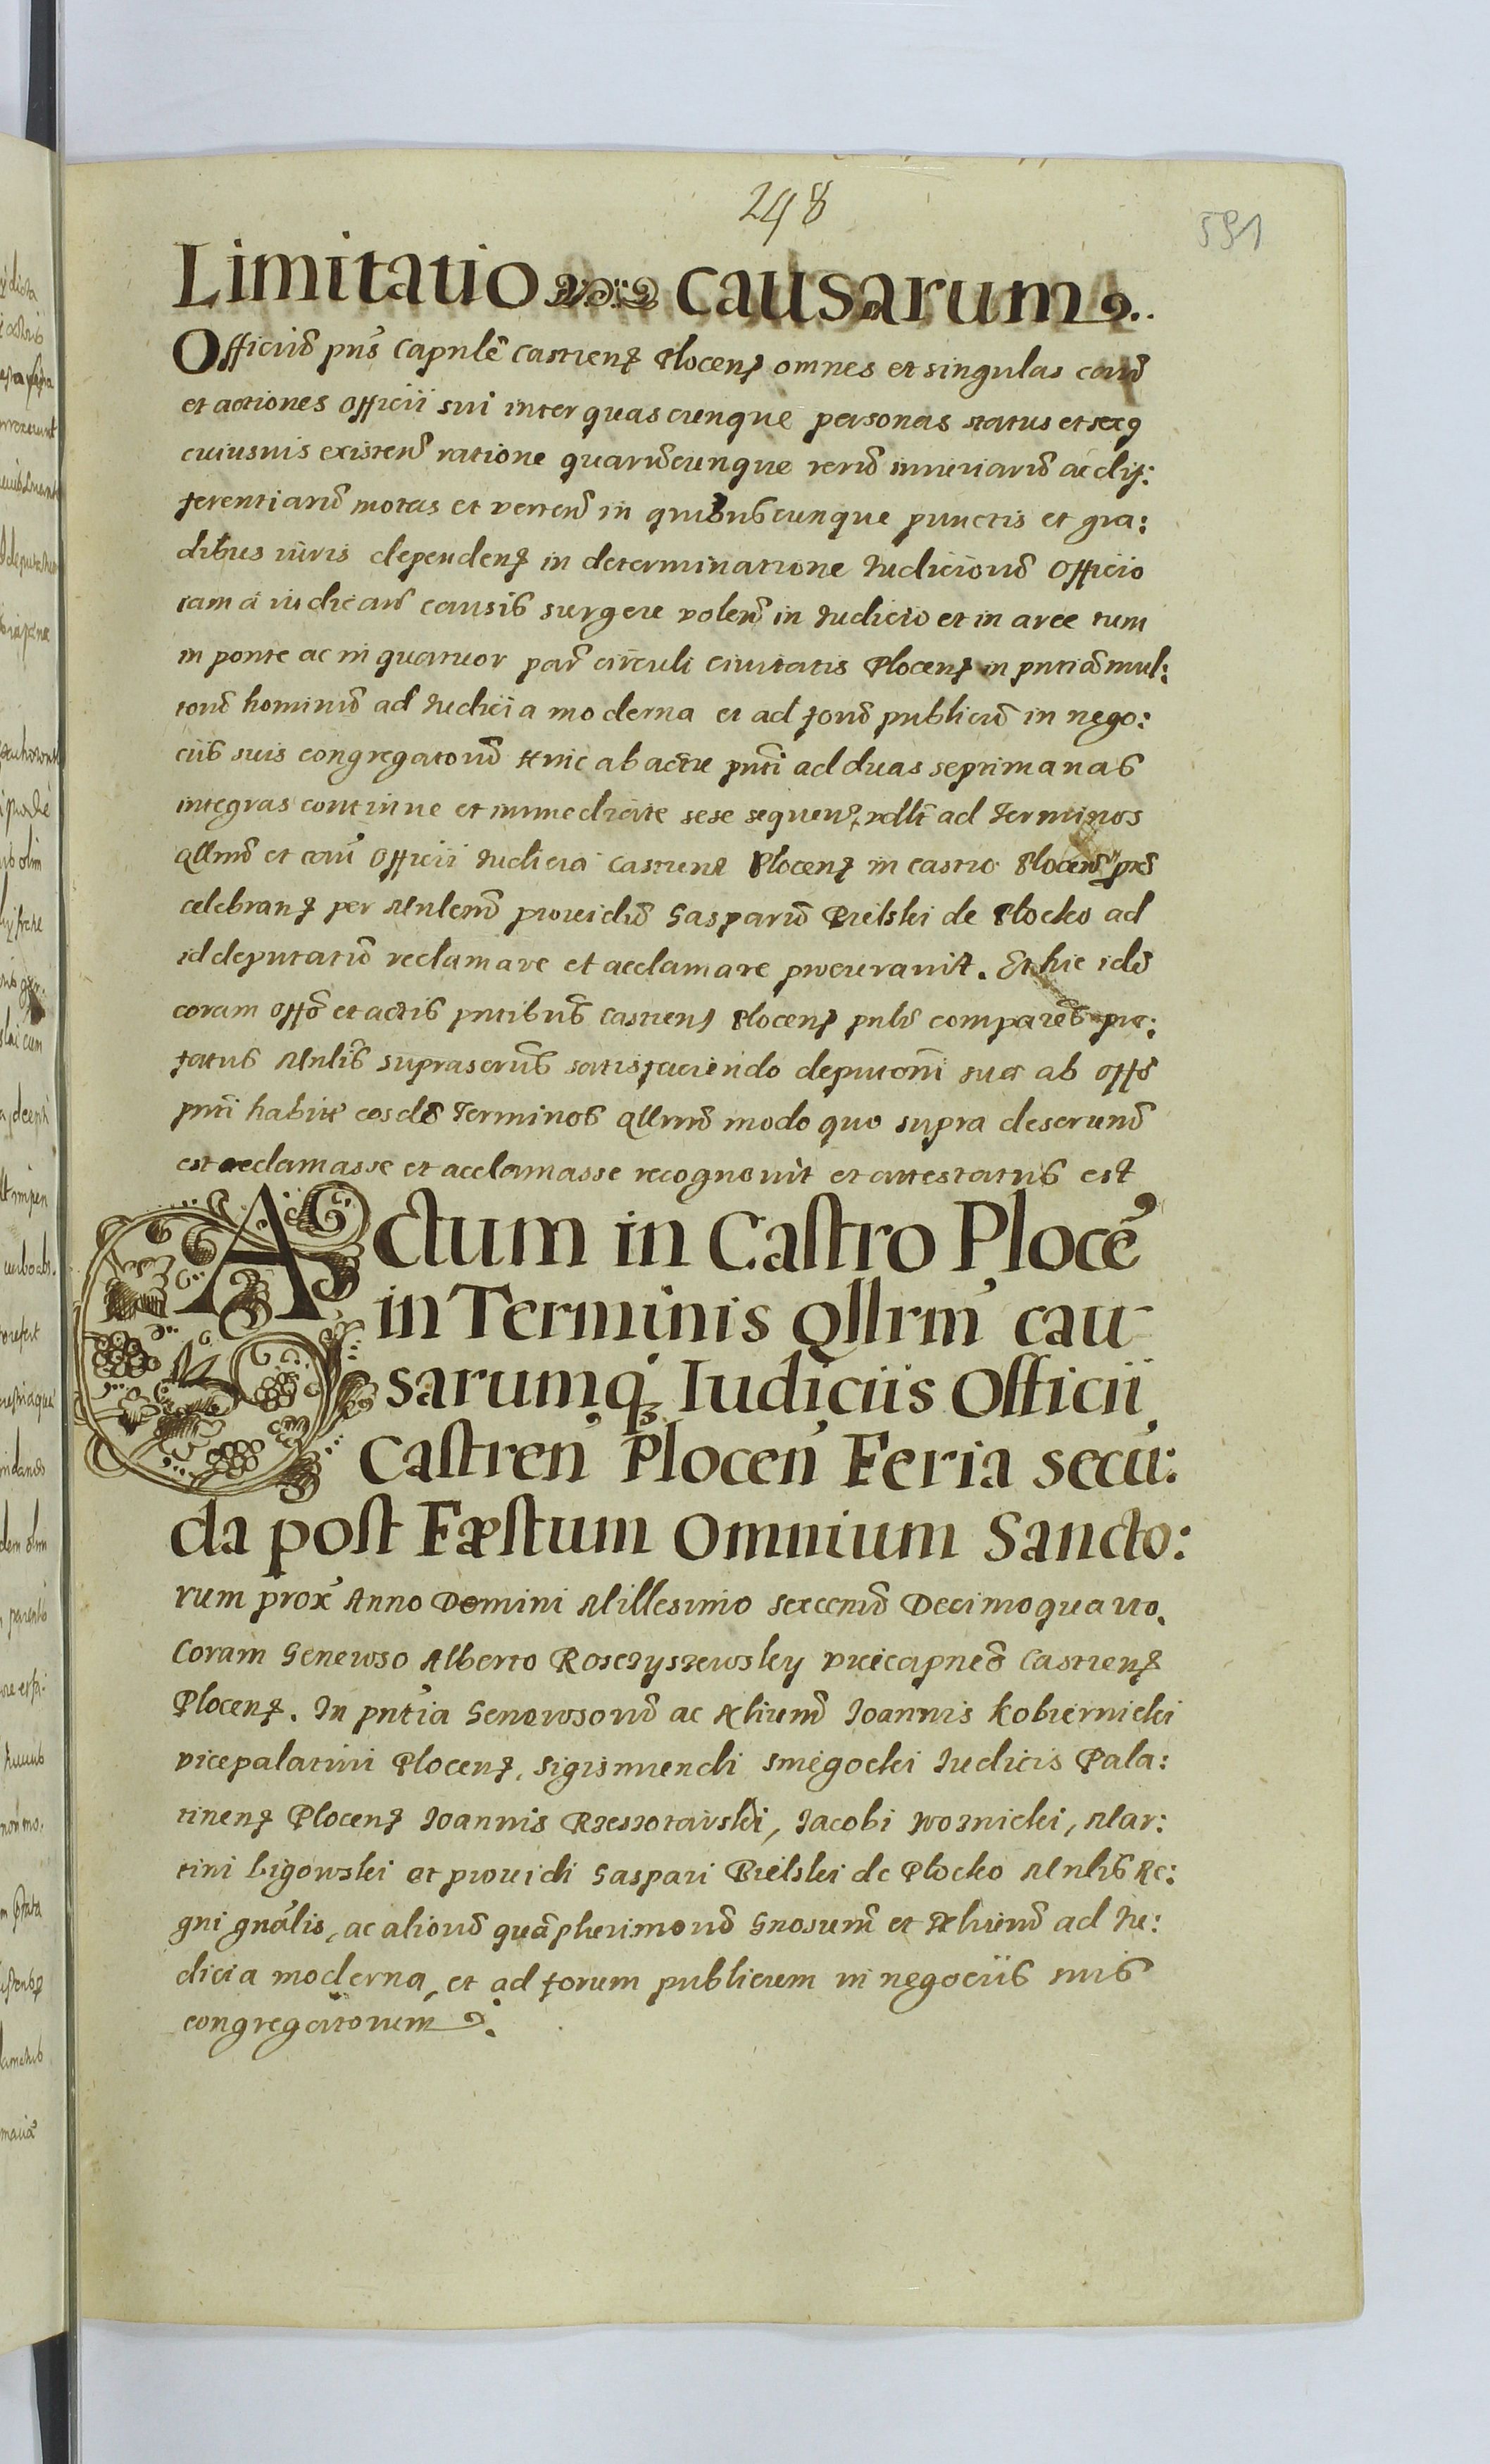 248
591
Limitatio causarum
Officiũ pñs Capnlẽ Castreñ Ploceñ omnes et singulas cauũ
et actiones officii sui inter quascunque personas status et sexq
cuiusuis existeñ ratione quarũcunque rerũ iniuriarũ ac dif:
ferentiarũ motas et verteñ in quibuscunque punctis et gra:
dibus iuris dependeñ in determinatione Iudiciorũ Officio
iam a iudicañ causis surgere voleñ in Iudicio et in arce tum
in ponte ac in quatuor par circuli Ciuitatis Ploceñ in pntiã mul:
torũ hominũ ad Iudicia moderna et ad forũ publicũ in nego:
ciis suis congregatorũ Hinc ab actu pñti ad duas septimanas
integras continue et immediate sese sequeñ, vdlt ad Terminos
Qllrnũ et cauř Officii Iudicia Castreñ Ploceñ in castro Ploceñ
celebrañ per Mnlemũ prouidũ Gasparũ Bielski de Plocko ad
id deputatũ reclamare et acclamare procurauit. Et hic idẽ
coram offõ et actis pntibus Castreñ Ploceñ pnlr comparẽs pre:
fatus Mnlis suprascrus satisfaciendo deputoni sua ab offõ
pnti habite eosdẽ Terminos Qllrnũ modo quo supra descrunũ
est reclamasse et acclamasse recognouit et attestatus est
Actum in Castro Plocẽ
in Terminis Qllrm̃ cau-
sarumq̃ Iudiciis Officii
Castreñ Ploceñ Feria secũ:
da post Fæstum Omnium Sancto:
rum prox̃ Anno Domini Millesimo sexcenũ Decimoquarto.
Coram Generoso Alberto Roscziszewsky vicecapneõ Castreñ
Ploceñ. In pntia Generosorũ ac Nbiliumũ Ioannis Kobiernicki
vicepalatini Ploceñ, Sigismundi Smęgocki Iudicis Pala:
tineñ Ploceñ Ioannis Rzeszotarski, Iacobi Woznicki, Mar:
tini Ligowski et prouidi Gaspari Bielski de Plocko Mnlis Re:
gni gnãlis, ac aliorũ quãplurimorũ Gnosum̃ et Nbiliumũ ad Iu:
dicia moderna, et ad forum publicum in negociis suis
congregatorum.